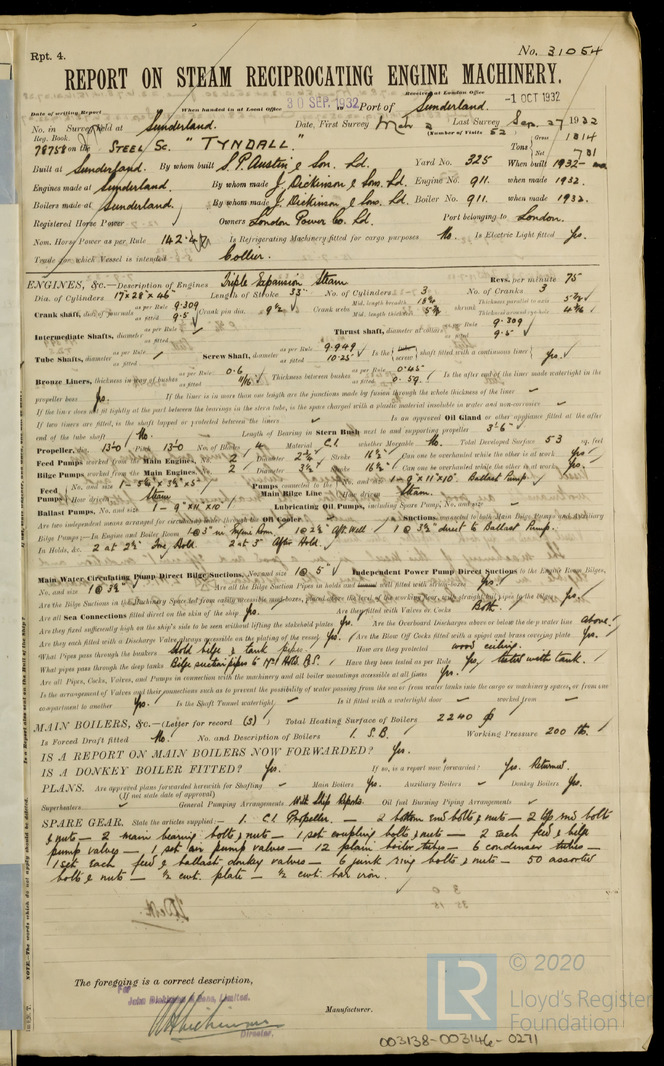 Rpt. 4.
No. 31054
REPORT ON STEAM RECIPROCATING ENGINE MACHINERY.
Received at London Office
Date of writing Report When handed in at Local Office 30 SEP. 1932 Port of Sunderland. -1 OCT 1932
No. in Survey held at Sunderland. Date, First Survey Last Survey Sep. 27 1932
Reg. Book. (Number of Visits 52)
78758 on the STEEL Sc. "TYNDALL" Tons Gross 1314 Net 701
Built at Sunderland By whom built S.P. Austin & Son. Ld. Yard No. 325 When built 1932
Engines made at Sunderland. By whom made J. Dickinson & Sons. Ld. Engine No. 911. when made 1932.
Boilers made at Sunderland. By whom made J. Dickinson & Sons. Ld. Boiler No. 911. when made 1932.
Registered Horse Power Owners London Power Co. Ld. Port belonging to London.
Nom. Horse Power as per Rule 142.4 Is Refrigerating Machinery fitted for cargo purposes No. Is Electric Light fitted Yes.
Trade for which Vessel is intended Collier.
ENGINES, &c.—Description of Engines Triple Expansion Steam Revs. per minute 75
Dia. of Cylinders 17" x 28" x 46" Length of Stroke 33" No. of Cylinders 3 No. of Cranks 3
Crank shaft, dia. of journals as per Rule 9.309 as fitted 9.5 Crank pin dia. 9½ Crank webs Mid. length breadth Mid. length thickness 5¾ shrunk Thickness parallel to axis 5¾ Thickness around eye-hole
Intermediate Shafts, diameter as per Rule as fitted Thrust shaft, diameter at collars as per Rule 9.309 as fitted 9.5
Tube Shafts, diameter as per Rule as fitted Screw Shaft, diameter as per Rule 9.949 as fitted 10.25 Is the screw shaft fitted with a continuous liner Yes.
Bronze Liners, thickness in way of bushes as per Rule 0.6 as fitted 11/16 Thickness between bushes as per Rule 0.45 as fitted 0.59. Is the after end of the liner made watertight in the
propeller boss Yes. If the liner is in more than one length are the junctions made by fusion through the whole thickness of the liner
If the liner does not fit tightly at the part between the bearings in the stern tube, is the space charged with a plastic material insoluble in water and non-corrosive
If two liners are fitted, is the shaft lapped or protected between the liners Is an approved Oil Gland or other appliance fitted at the after
end of the tube shaft No. Length of Bearing in Stern Bush next to and supporting propeller 3'-6"
Propeller, dia. 13'-0 Pitch 13'-0 No. of Blades 4 Material C.I. whether Moveable No. Total Developed Surface 53 sq. feet
Feed Pumps worked from the Main Engines, No. 2 Diameter Stroke 16½ Can one be overhauled while the other is at work Yes
Bilge Pumps worked from the Main Engines, No. 2 Diameter 16½ Can one be overhauled while the other is at work Yes.
Feed Pumps No. and size How driven Steam Pumps connected to the Main Bilge Line No. and size 1 - 9" x 11" x 10". Ballast Pump. How driven Steam.
Ballast Pumps, No. and size 1 - 9" x 11" x 10" Lubricating Oil Pumps, including Spare Pump, No. and size
Are two independent means arranged for circulating water through the Oil Cooler Suctions, connected to both Main Bilge Pumps and Auxiliary
Bilge Pumps;—In Engine and Boiler Room 1 @ 3" in Engine Room. 1 @ 2½ aft. Well 1 @ 3½ direct to Ballast Pump.
In Holds, &c. 2 at 2½" Fore Hold. 2 at 3" After Hold.
Main Water Circulating Pump Direct Bilge Suctions, No. and size 1 @ 5" Independent Power Pump Direct Suctions to the Engine Room Bilges,
No. and size 1 @ 3½" Are all the Bilge Suction Pipes in holds and well fitted with strum-boxes Yes.
Are the Bilge Suctions in the Machinery Spaces led from easily accessible mud-boxes, placed above the level of the working floor, with straight tail pipes to the bilges Yes.
Are all Sea Connections fitted direct on the skin of the ship Yes. Are they fitted with Valves or Cocks Both.
Are they fixed sufficiently high on the ship's side to be seen without lifting the stokehold plates Yes. Are the Overboard Discharges above or below the deep water line above.
Are they each fitted with a Discharge Valve always accessible on the plating of the vessel Yes. Are the Blow Off Cocks fitted with a spigot and brass covering plate Yes.
What Pipes pass through the bunkers Hold bilge & tank pipes. How are they protected wood ceiling.
What pipes pass through the deep tanks Bilge suction pipes to No 1 Hold Have they been tested as per Rule Yes, tested with tank.
Are all Pipes, Cocks, Valves, and Pumps in connection with the machinery and all boiler mountings accessible at all times Yes.
Is the arrangement of Valves and their connections such as to prevent the possibility of water passing from the sea or from water tanks into the cargo or machinery spaces, or from one
compartment to another Yes. Is the Shaft Tunnel watertight Is it fitted with a watertight door worked from
MAIN BOILERS, &c.—(Letter for record (S)) Total Heating Surface of Boilers 2240
Is Forced Draft fitted No. No. and Description of Boilers 1. S.B. Working Pressure 200 lb.
IS A REPORT ON MAIN BOILERS NOW FORWARDED? Yes.
IS A DONKEY BOILER FITTED? Yes. If so, is a report now forwarded? Yes. Returned.
PLANS. Are approved plans forwarded herewith for Shafting Main Boilers Yes. Auxiliary Boilers Donkey Boilers Yes.
(If not state date of approval)
Superheaters General Pumping Arrangements With Ship Reports. Oil fuel Burning Piping Arrangements
SPARE GEAR. State the articles supplied:— 1. C.I. Propeller. — 2 bottom end bolts & nuts — 2 top end bolts
& nuts — 2 main bearing bolts & nuts — 1 set coupling bolts & nuts — 2 each feed & bilge
pump valves — 1 set air pump valves — 12 plain boiler tubes — 6 condenser tubes —
1 set each feed & ballast donkey valves — 6 junk ring bolts & nuts — 50 assorted
bolts & nuts — ½ cwt. plate — ½ cwt. bar iron.
The foregoing is a correct description,
For John Dickinson & Sons, Limited.
Director.
Manufacturer.
© 2020
LR Lloyd's Register
Foundation
003138-003146-0271